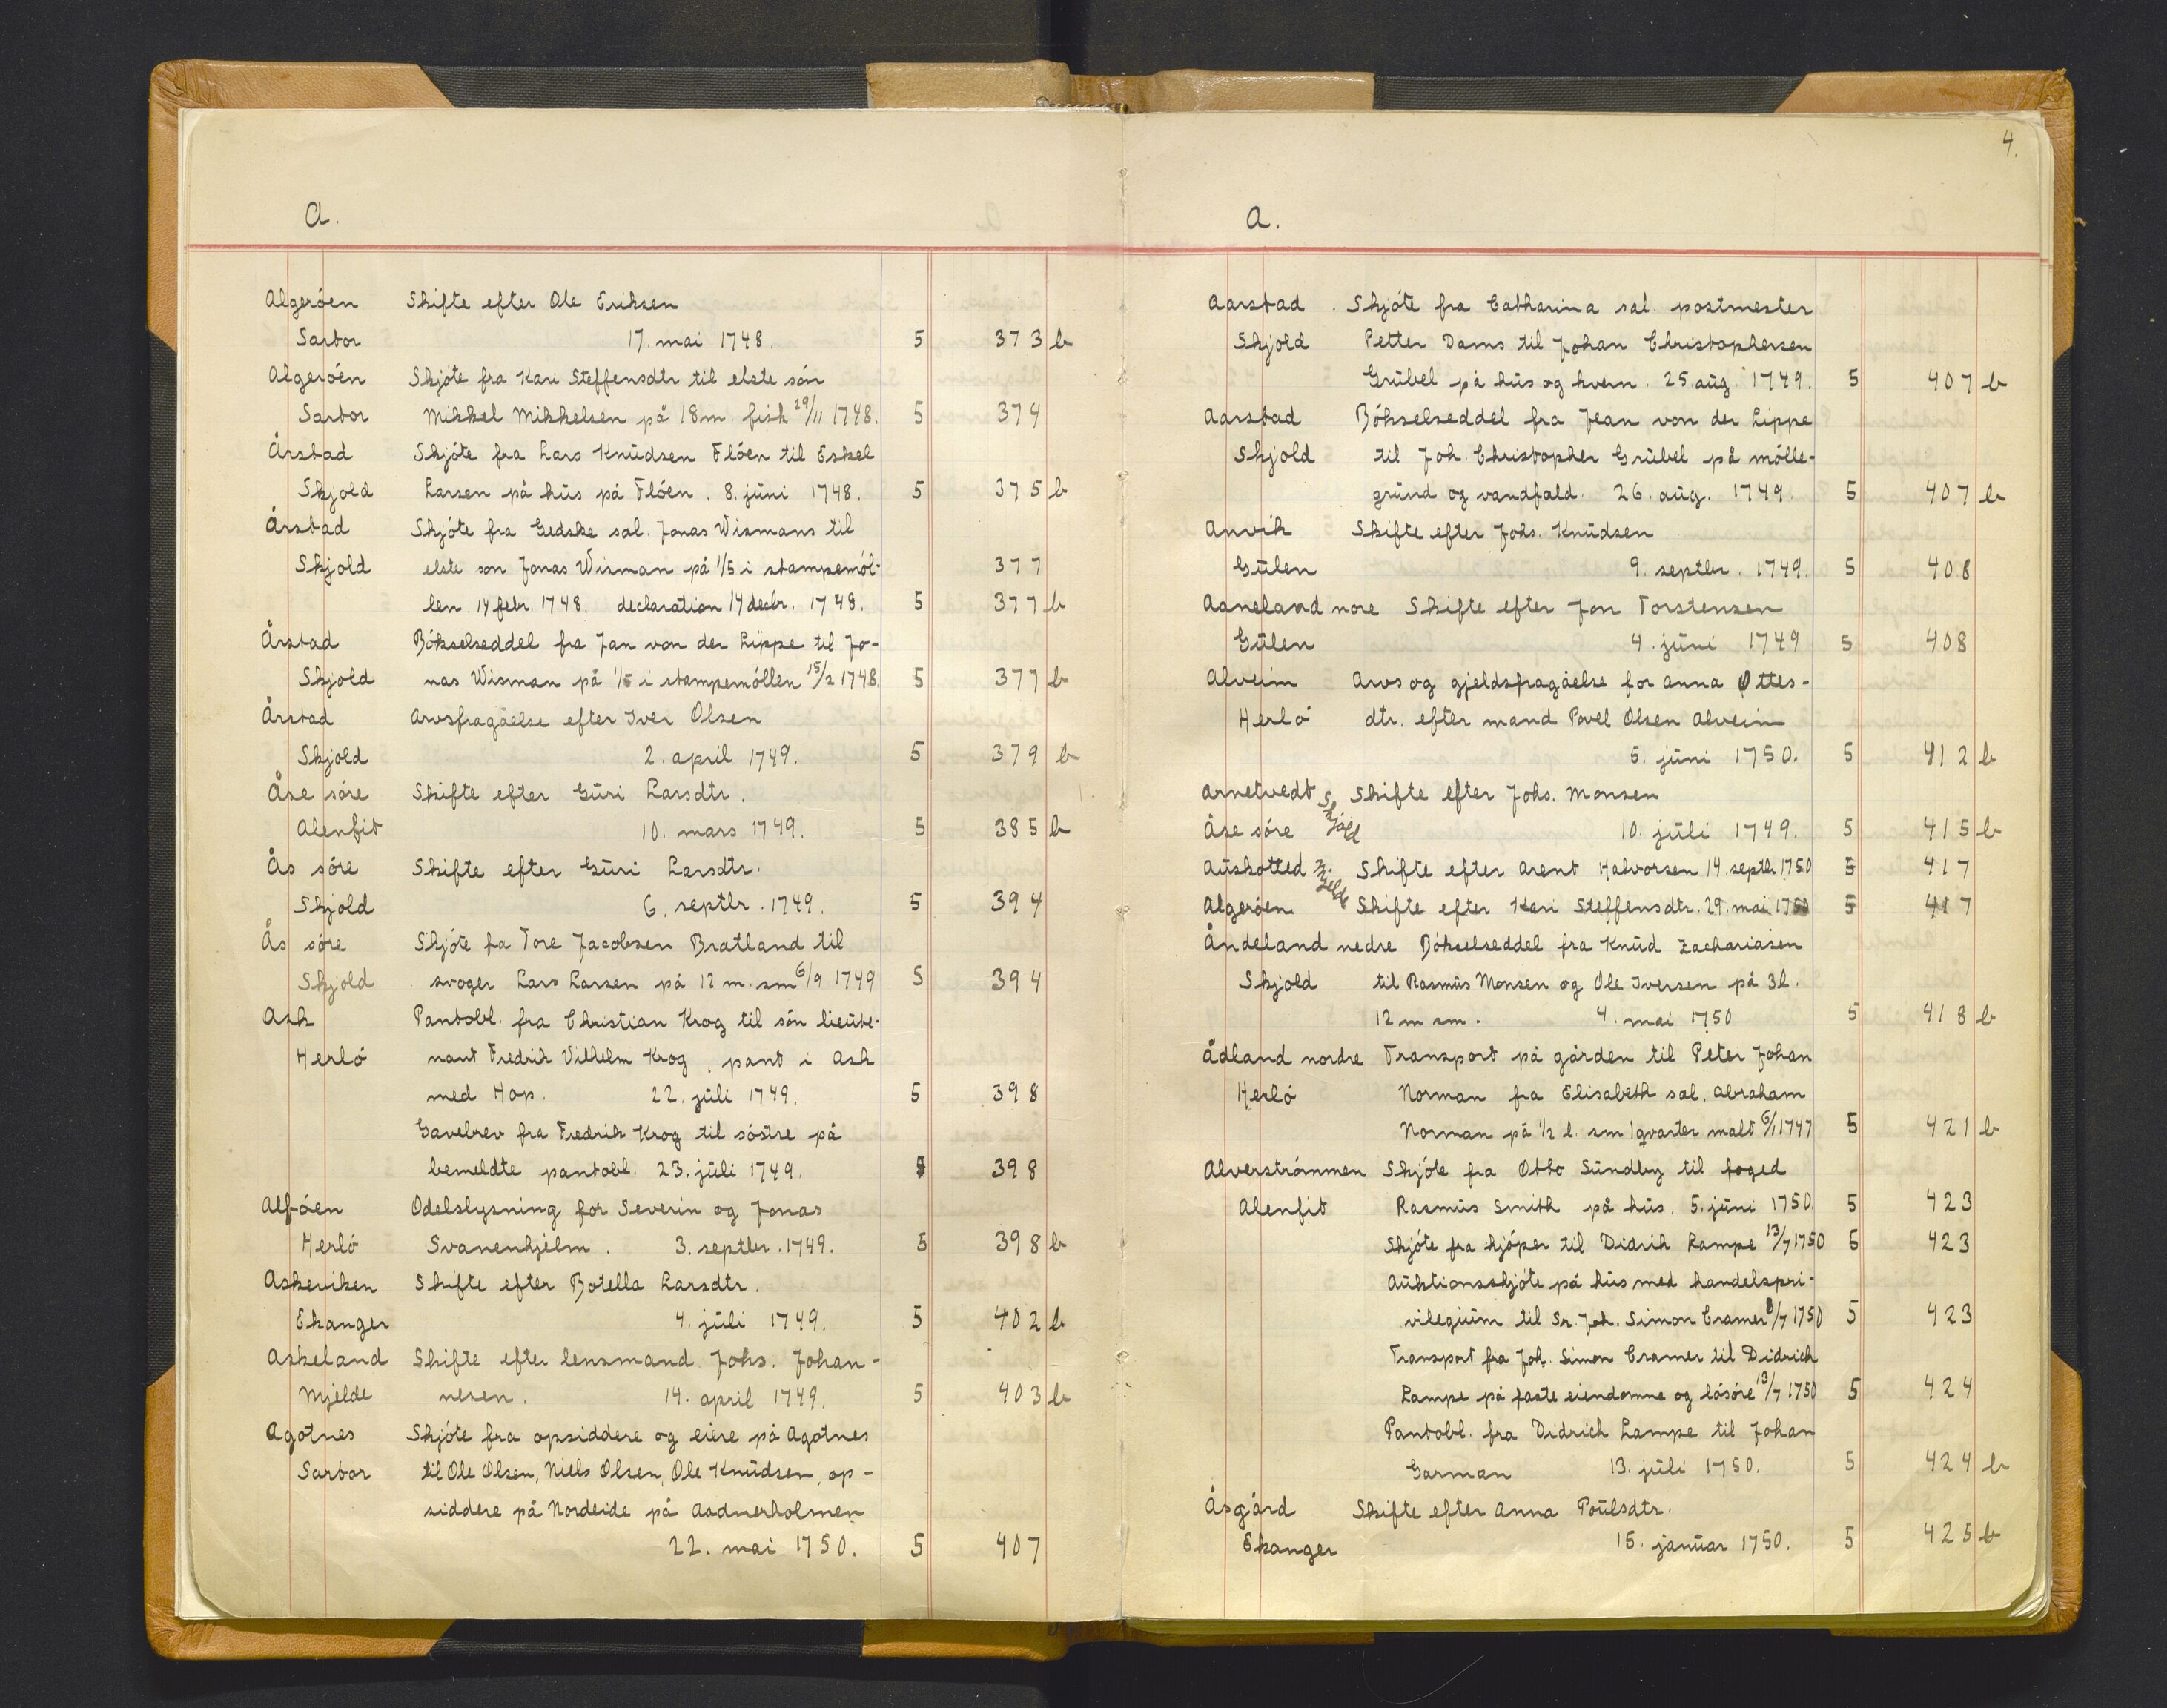 A.
Algeróen Skifte efter Ole Eriksen
Sartor 17. mai 1748. 5 373 b
Algeróen Skjóte fra Kari Steffensdtr til elste són
Sartor Mikkel Mikkelsen på 18 m. fisk 29/11 1748. 5 374
Årstad Skjóte fra Lars Knudsen Flóen til Eskel
Skjold Larsen på hus på Flóen. 8. juni 1748. 5 375 b
Årstad Skjóte fra Gedske sal. Jonas Wismans til
Skjold elste son Jonas Wisman på 1/5 i stampemól- 377
len. 14 febr. 1748. declaration 14 decbr. 1748. 5 377 b
Årstad Bókselseddel fra Jan von der Lippe til Jo-
Skjold nas Wisman på 1/5 i stampemóllen 15/2 1748. 5 377 b
Årstad Arvsfragåelse efter Iver Olsen
Skjold 2. april 1749. 5 379 b
Åse sóre Skifte efter Guri Larsdtr.
Alenfit 10. mars 1749. 5 385 b
Ås sóre Skifte efter Guri Larsdtr.
Skjold 6. septbr. 1749. 5 394
Ås sóre Skjóte fra Tore Jacobsen Bratland til
Skjold svoger Lars Larsen på 12 m. sm 6/9 1749 5 394
Ask Pantobl. fra Christian Krog til són lieute-
Herló nant Fredrik Vilhelm Krog, pant i Ask
med Hop. 22. juli 1749. 5 398
Gavebrev fra Fredrik Krog til sóstre på
bemeldte pantobl. 23. juli 1749. 5 398
Alfóen Odelslysning for Severin og Jonas
Herló Svanenhjelm. 3. septbr. 1749. 5 398 b
Askeviken Skifte efter Botella Larsdtr.
Ekanger 4. juli 1749. 5 402 b
Askeland Skifte efter lensmand Johs. Johan-
Mjelde nesen. 14. april 1749. 5 403 b
Agotnes Skjóte fra opsiddere og eiere på Agotnes
Sartor til Ole Olsen, Niels Olsen, Ole Knudsen, op-
siddere på Nordeide på Aadnerholmen
22. mai 1750. 5 407
4.
A.
Aarstad Skjóte fra Catharina sal. postmester
Skjold Petter Dams til Johan Christophersen
Grubel på hus og kvern. 25. aug. 1749. 5 407 b
Aarstad Bókselseddel fra Jean von der Lippe
Skjold til Joh. Christopher Grubel på mólle-
grund og vandfald. 26. aug. 1749. 5 407 b
Anvik Skifte efter Johs. Knudsen
Gulen 9. septbr. 1749. 5 408
Aaneland nore Skifte efter Jon Torstensen
Gulen 4. juni 1749 5 408
Alveim Arvs og gjeldsfragåelse for Anna Ottes-
Herló dtr. efter mand Povel Olsen Alveim
5. juni 1750. 5 412 b
Arnetvedt Skjold Skifte efter Johs. Monsen
Åse sóre 10. juli 1749. 5 415 b
Auskotted Mjelde Skifte efter Arent Halvorsen 14. septbr 1750 5 417
Algeróen Skifte efter Kari Steffensdtr. 29. mai 1750 5 417
Åndeland nedre Bókselseddel fra Knud Zachariasen
Skjold til Rasmus Monsen og Ole Iversen på 3 l.
12 m sm. 4. mai 1750 5 418 b
Ådland nordre Transport på gården til Peter Johan
Herló Norman fra Elisabeth sal. Abraham
Norman på 1/2 l. sm 1 qvarter malt 6/1 1747 5 421 b
Alverstrómmen Skjóte fra Otto Sundby til foged
Alenfit Rasmus Smith på hus. 5. juni 1750. 5 423
Skjóte fra kjóper til Didrik Lampe 13/7 1750 5 423
Auktionsskjóte på hus med handelspri-
vilegium til Sr. Joh. Simon Cramer 8/7 1750 5 423
Transport fra Joh. Simon Cramer til Didrich
Lampe på faste eiendomme og lósóre 13/7 1750 5 424
Pantobl. fra Didrich Lampe til Johan
Garman 13. juli 1750. 5 424 b
Åsgård Skifte efter Anna Poulsdtr.
Ekanger 15. januar 1750. 5 425 b